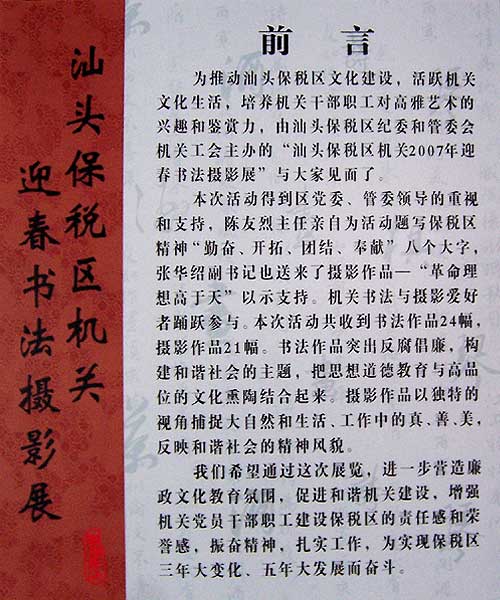 汕头保税区机关
迎春书法摄影展
前言
为推动汕头保税区文化建设，活跃机关
文化生活，培养机关干部职工对高雅艺术的
兴趣和鉴赏力，由汕头保税区纪委和管委会
机关工会主办的“汕头保税区机关2007年迎
春书法摄影展”与大家见面了。
本次活动得到区党委、管委领导的重视
和支持，陈友烈主任亲自为活动题写保税区
精神“勤奋、开拓、团结、奉献”八个大字，
张华绍副书记也送来了摄影作品—“革命理
想高于天”以示支持。机关书法与摄影爱好
者踊跃参与。本次活动共收到书法作品24幅，
摄影作品21幅。书法作品突出反腐倡廉，构
建和谐社会的主题，把思想道德教育与高品
位的文化熏陶结合起来。摄影作品以独特的
视角捕捉大自然和生活、工作中的真、善、美，
反映和谐社会的精神风貌。
我们希望通过这次展览，进一步营造廉
政文化教育氛围，促进和谐机关建设，增强
机关党员干部职工建设保税区的责任感和荣
誉感，振奋精神，扎实工作，为实现保税区
三年大变化、五年大发展而奋斗。